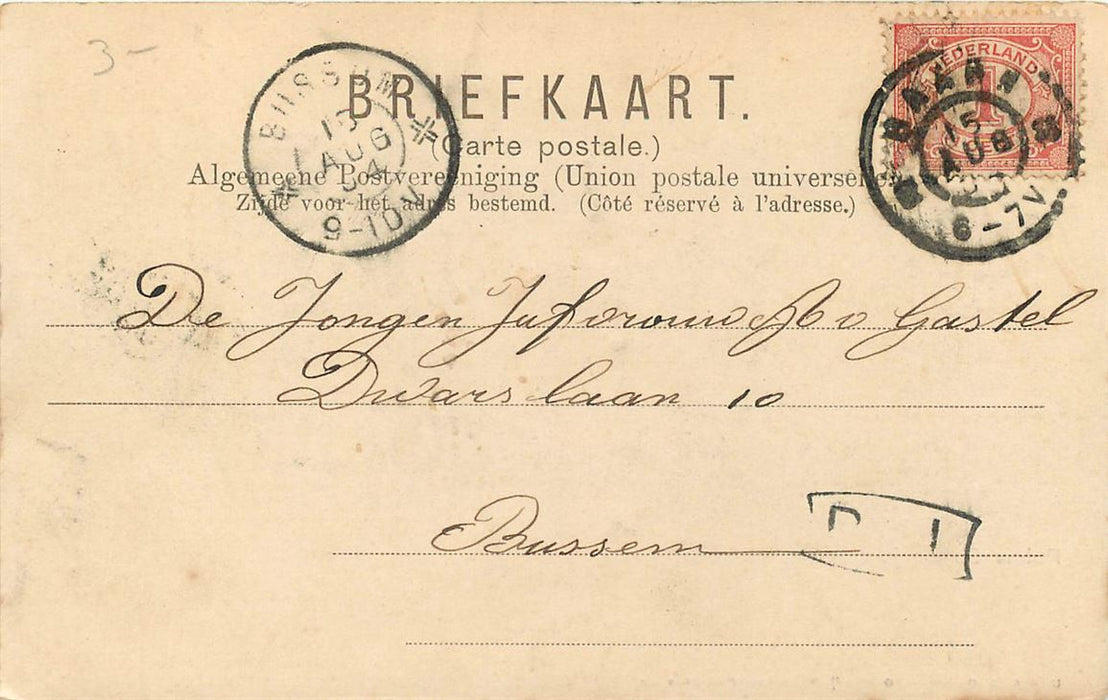 3-
BRIEFKAART.
(Carte postale.)
Algemeene Postvereeniging (Union postale universelle
Zijde voor het adres bestemd. (Côté réservé à l'adresse.)
BUSSUM
AUG
9-10V
NEDERLAND
1
BAARN
15
AUG
6-7V
De Jongen Jufvrouw A v Gastel
Dwars laan 10
Bussem